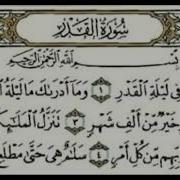 سُورَةُ القَدْرِ
بِسْمِ اللَّهِ الرَّحْمَٰنِ الرَّحِيمِ
فِى لَيْلَةِ الْقَدْرِ ١ وَمَا أَدْرَىٰكَ مَا لَيْلَةُ
خَيْرٌ مِّنْ أَلْفِ شَهْرٍ ٣ تَنَزَّلُ
مِّن كُلِّ أَمْرٍ ٤ سَلَٰمٌ هِىَ حَتَّىٰ مَطْلَعِ